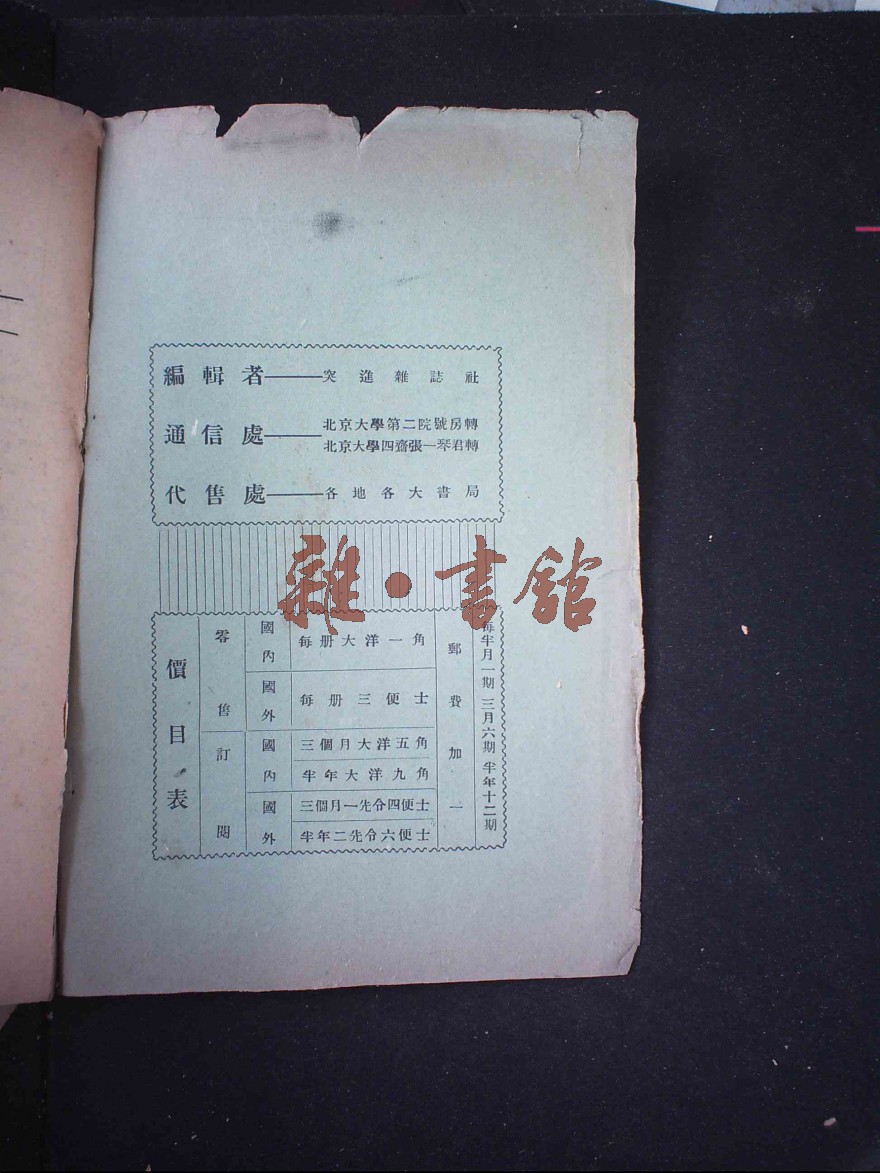 編輯者——突進雜誌社
通信處——北京大學第二院號房轉
北京大學四齋張一琴君轉
代售處——各地各大書局
雜·書館
價目表
零售
國內
每册大洋一角
國外
每册三便士
訂閱
國內
三個月大洋五角
半年大洋九角
國外
三個月一先令四便士
半年二先令六便士
郵費加一
每半月一期 三月六期 半年十二期